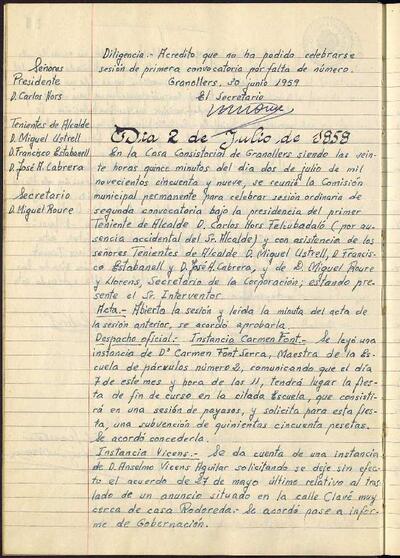 Señores
Presidente
D. Carlos Hors
Tenientes de Alcalde
D. Miguel Ustrell
D. Francisco Estabanell
D. José M. Cabrera
Secretario
D. Miguel Roure
Diligencia.- Acredito que no ha podido celebrarse
sesión de primera convocatoria por falta de número.
Granollers, 30 junio 1959
El Secretario
Dia 2 de Julio de 1959
En la Casa Consistorial de Granollers siendo las vein-
te horas quince minutos del dia dos de julio de mil
novecientos cincuenta y nueve, se reunió la Comisión
municipal permanente para celebrar sesión ordinaria de
segunda convocatoria bajo la presidencia del primer
Teniente de Alcalde D. Carlos Hors Felubadaló (por au-
sencia accidental del Sr. Alcalde) y con asistencia de los
señores Tenientes de Alcalde D. Miguel Ustrell, D. Francis-
co Estabanell y D. José M. Cabrera, y de D. Miguel Roure
y Llorens, Secretario de la Corporación; estando pre-
sente el Sr. Interventor.
Acta.- Abierta la sesión y leída la minuta del acta de
la sesión anterior, se acordo aprobarla.
Despacho oficial.- Instancia Carmen Font.- Se leyó una
instancia de Dª Carmen Font Serra, Maestra de la Es-
cuela de párvulos número 2, comunicando que el día
7 de este mes y hora de las 11, tendrá lugar la fies-
ta de fin de curso en la citada Escuela, que consisti-
rá en una sesión de payasos, y solicita para esta fies-
ta, una subvención de quinientas cincuenta pesetas.
Se acordó concederla.
Instancia Vicens.- Se da cuenta de una instancia
de D. Anselmo Vicens Aguilar solicitando se deje sin efec-
to el acuerdo de 27 de mayo último relativo al tras-
lado de un anuncio situado en la calle Clavé muy
cerca de casa Rodereda. Se acordó pase a infor-
me de Gobernación.